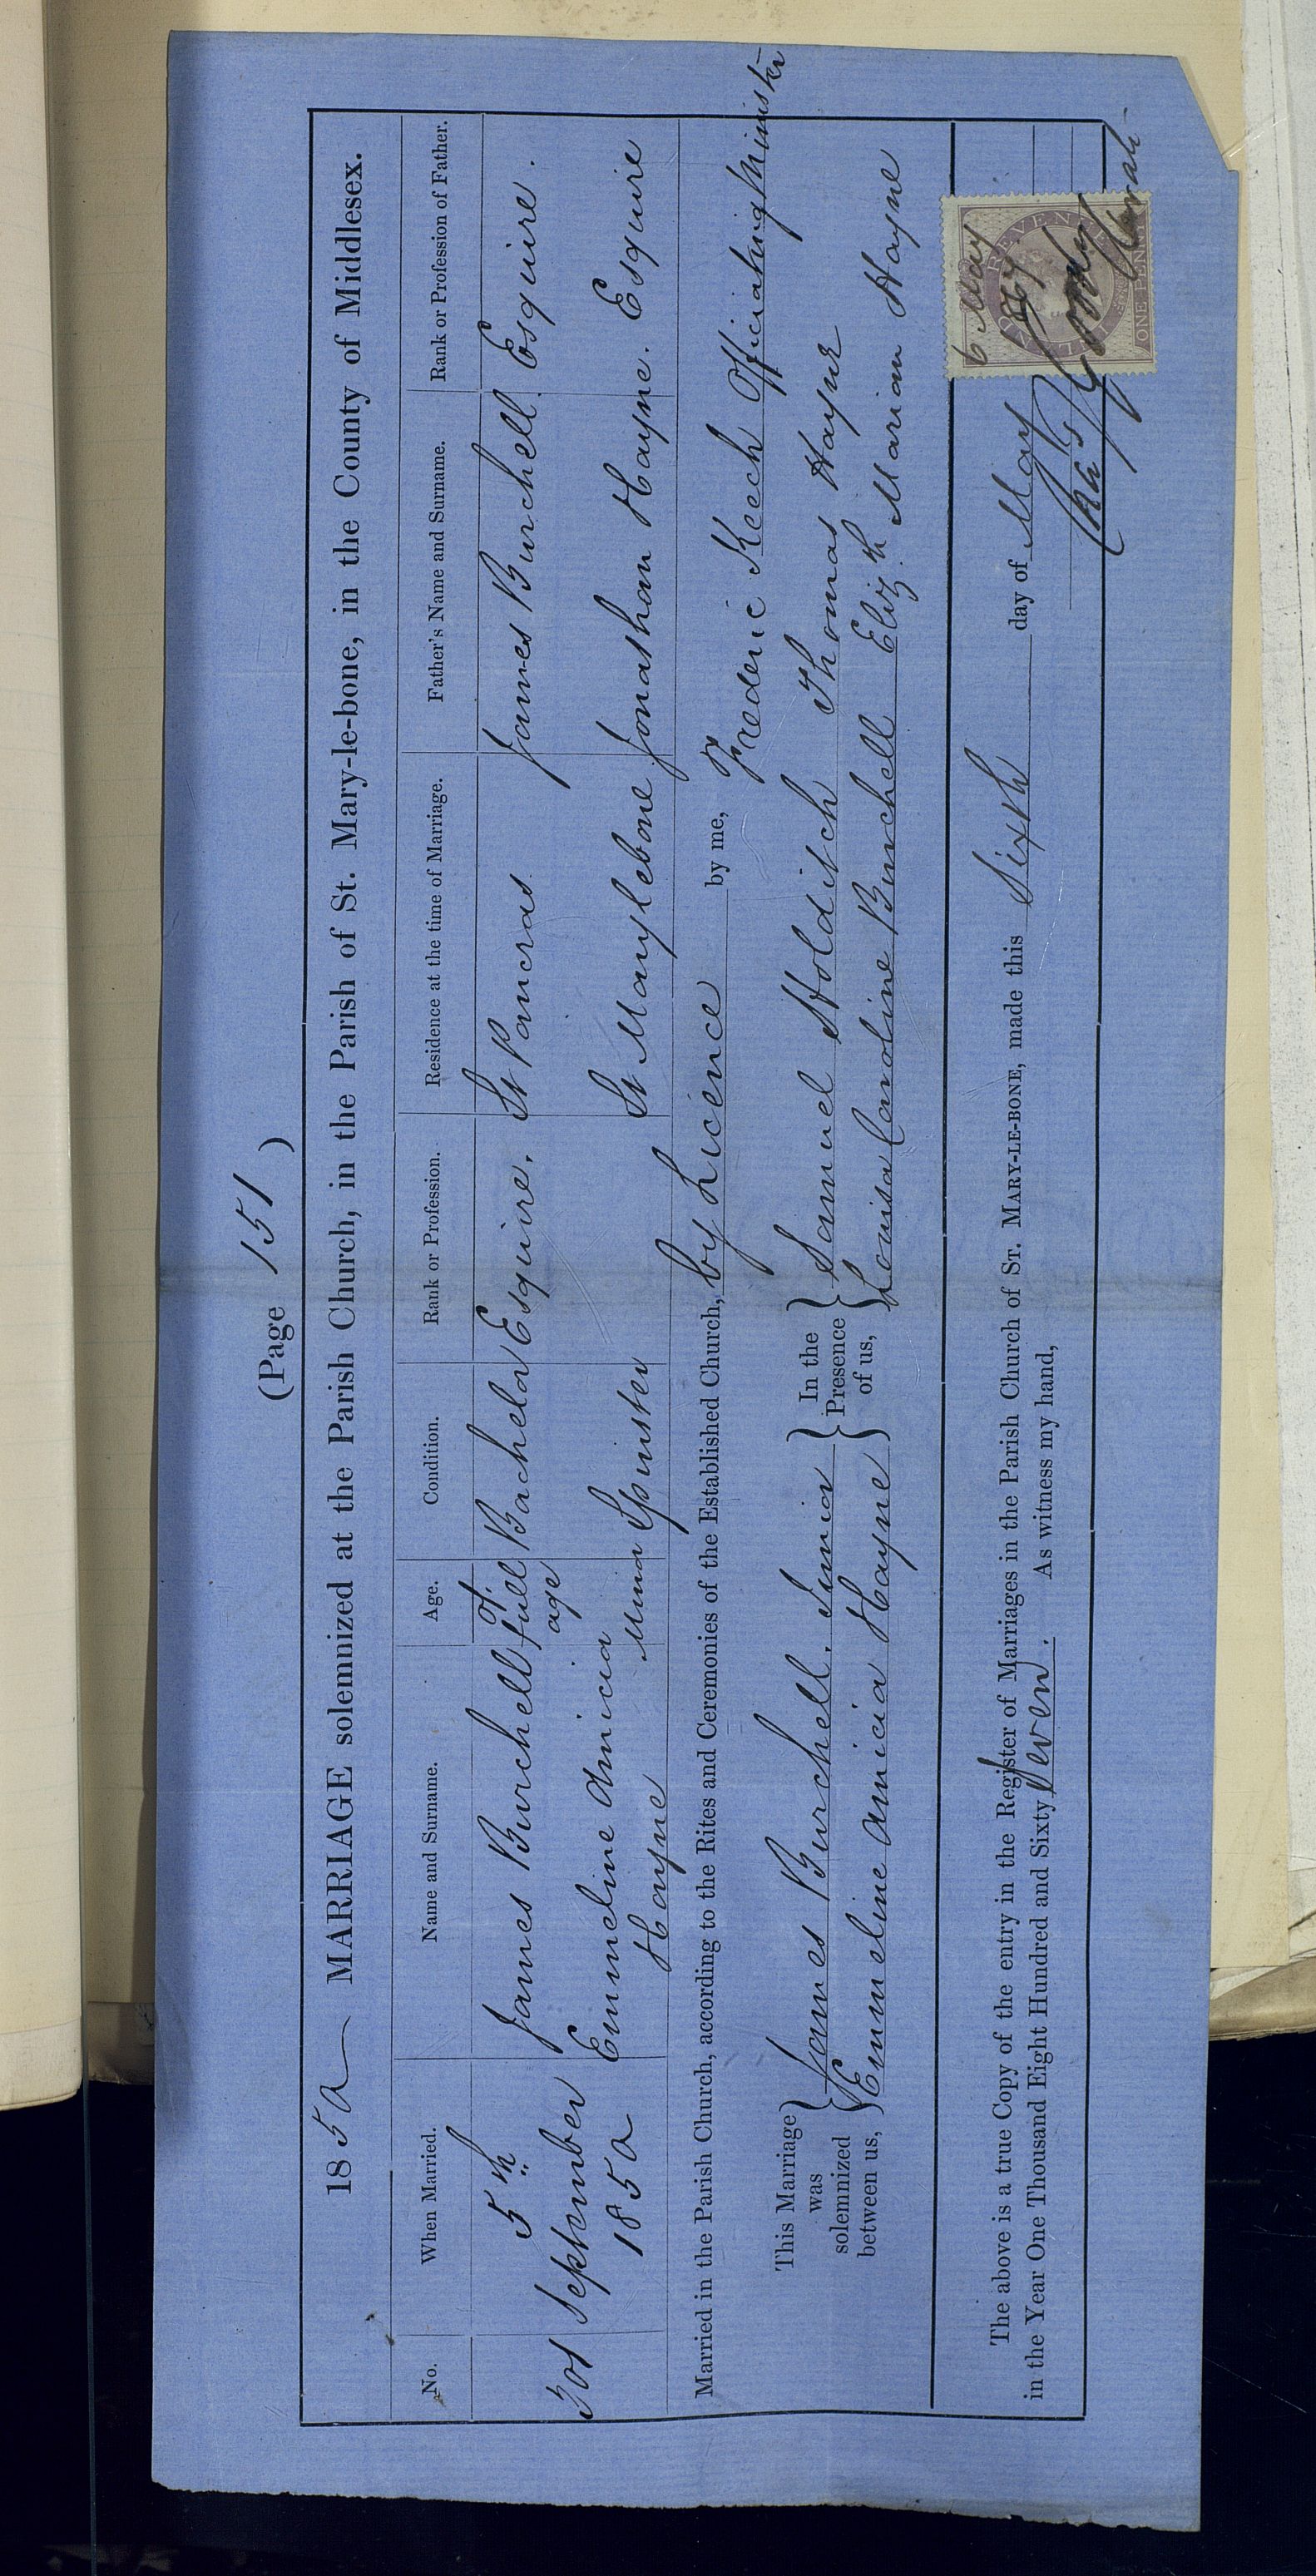 (Page 151 )
185 MARRIAGE solemnized at the Parish Church, in the Parish of St. Mary-le-bone, in the County of Middlesex.
No. When Married. Name and Surname. Age. Condition. Rank or Profession. Residence at the time of Marriage. Father's Name and Surname. Rank or Profession of Father.
301 5th September 185 James Burchell Of full age Bachelor Esquire. St Pancras James Burchell Esquire.
Emmeline Amicia Hayne Minor Spinster St Marylebone Jonathan Hayne. Esquire
Married in the Parish Church, according to the Rites and Ceremonies of the Established Church, by Licence by me, Frederic Keech Officiating Minister
This Marriage was solemnized between us, James Burchell. Junior
Emmeline Amicia Hayne
In the Presence of us, Samuel Holditch Thomas Hayne
Louisa Caroline Burchell Elizth Marian Hayne
The above is a true Copy of the entry in the Register of Marriages in the Parish Church of ST. MARY-LE-BONE, made this Sixth day of May
in the Year One Thousand Eight Hundred and Sixty Seven. As witness my hand,
6 May
INLAND REVENUE
ONE PENNY